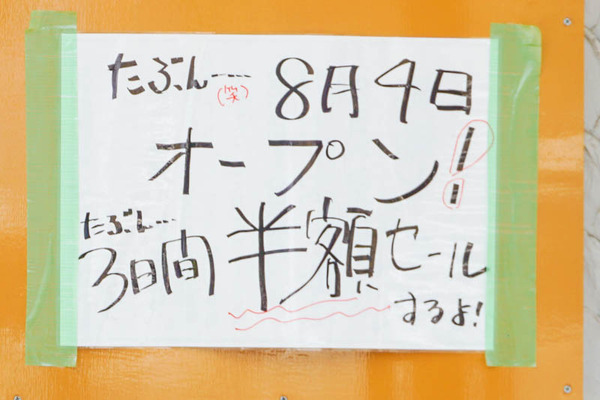 たぶん……(笑) 8月4日
オープン!
たぶん…
3日間 半額セール
するよ!